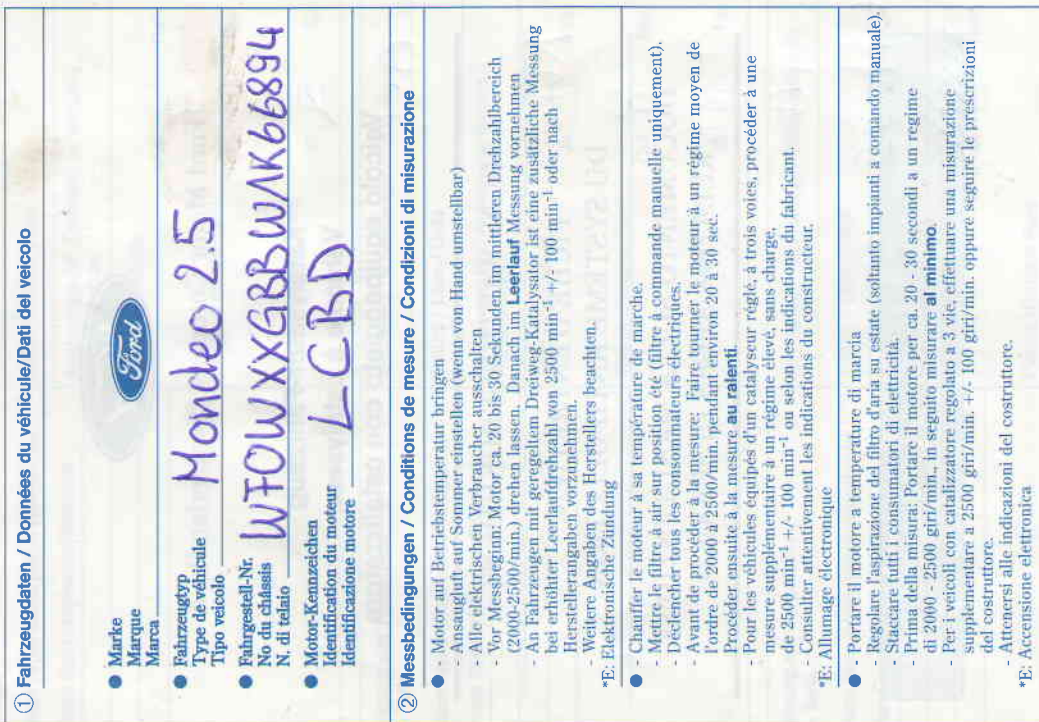 ① Fahrzeugdaten / Données du véhicule/Dati del veicolo
● Marke
Marque
Marca
Ford
● Fahrzeugtyp
Type de véhicule
Tipo veicolo
Mondeo 2.5
● Fahrgestell-Nr.
No du châssis
N. di telaio
WFOWXXGBBW1K66894
● Motor-Kennzeichen
Identification du moteur
Identificazione motore
LCBD
② Messbedingungen / Conditions de mesure / Condizioni di misurazione
● - Motor auf Betriebstemperatur bringen
- Ansaugluft auf Sommer einstellen (wenn von Hand umstellbar)
- Alle elektrischen Verbraucher ausschalten
- Vor Messbeginn: Motor ca. 20 bis 30 Sekunden im mittleren Drehzahlbereich
(2000-2500/min.) drehen lassen. Danach im Leerlauf Messung vornehmen
- An Fahrzeugen mit geregeltem Dreiweg-Katalysator ist eine zusätzliche Messung
bei erhöhter Leerlaufdrehzahl von 2500 min⁻¹ +/- 100 min⁻¹ oder nach
Herstellerangaben vorzunehmen.
- Weitere Angaben des Herstellers beachten.
*E: Elektronische Zündung
● - Chauffer le moteur à sa température de marche.
- Mettre le filtre à air sur position été (filtre à commande manuelle uniquement).
- Déclencher tous les consommateurs électriques.
- Avant de procéder à la mesure: Faire tourner le moteur à un régime moyen de
l'ordre de 2000 à 2500/min. pendant environ 20 à 30 sec.
Procéder ensuite à la mesure au ralenti.
- Pour les véhicules équipés d'un catalyseur réglé, à trois voies, procéder à une
mesure supplémentaire à un régime élevé, sans charge,
de 2500 min⁻¹ +/- 100 min⁻¹ ou selon les indications du fabricant.
- Consulter attentivement les indications du constructeur.
*E: Allumage électronique
● - Portare il motore a temperature di marcia
- Regolare l'aspirazione del filtro d'aria su estate (soltanto impianti a comando manuale).
- Staccare tutti i consumatori di elettricità.
- Prima della misura: Portare il motore per ca. 20 - 30 secondi a un regime
di 2000 - 2500 giri/min., in seguito misurare al minimo.
- Per i veicoli con catalizzatore regolato a 3 vie, effettuare una misurazione
supplementare a 2500 giri/min. +/- 100 giri/min. oppure seguire le prescrizioni
del costruttore.
- Attenersi alle indicazioni del costruttore.
*E: Accensione elettronica